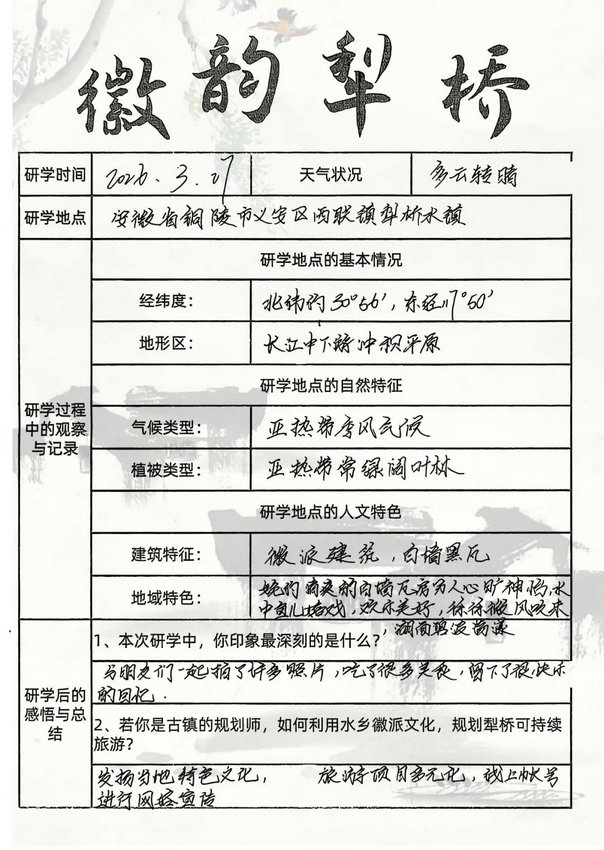 徽韵犁桥
研学时间 2026.3.27 天气状况 多云转晴
研学地点 安徽省铜陵市义安区西联镇犁桥水镇
研学地点的基本情况
经纬度： 北纬约30°56′，东经117°50′
地形区： 长江中下游冲积平原
研学地点的自然特征
研学过程中的观察与记录
气候类型： 亚热带季风气候
植被类型： 亚热带常绿阔叶林
研学地点的人文特色
建筑特征： 徽派建筑，白墙黑瓦
地域特色： 的白墙瓦房另人心旷神怡，水
中鱼儿嬉戏，欢乐美好，徐徐微风吹来
，湖面碧波荡漾
研学后的感悟与总结
1、本次研学中，你印象最深刻的是什么？
与朋友们一起拍了许多照片，吃了很多美食，留下了很快乐
的回忆.
2、若你是古镇的规划师，如何利用水乡徽派文化，规划犁桥可持续
旅游？
发扬当地特色文化， 旅游项目多元化，线上帐号
进行网络宣传